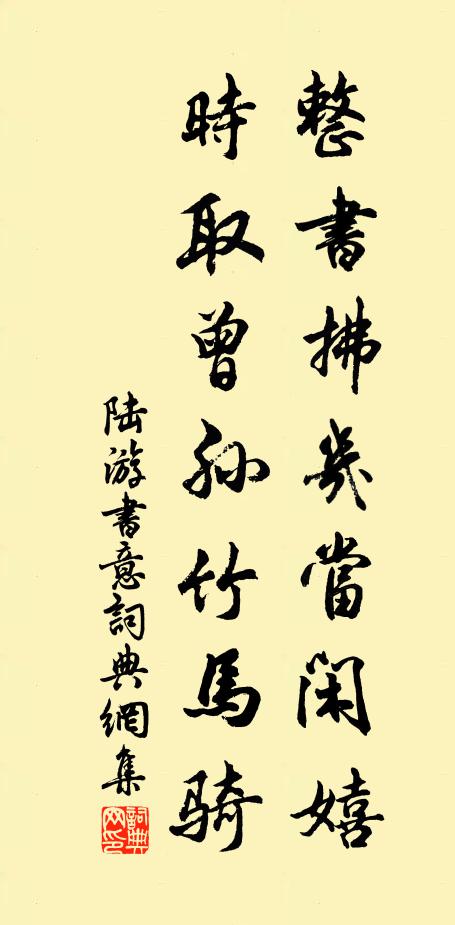 整書拂几當閑嬉
時取曾孫竹馬騎
陸游書意詞典網集
詞典網印